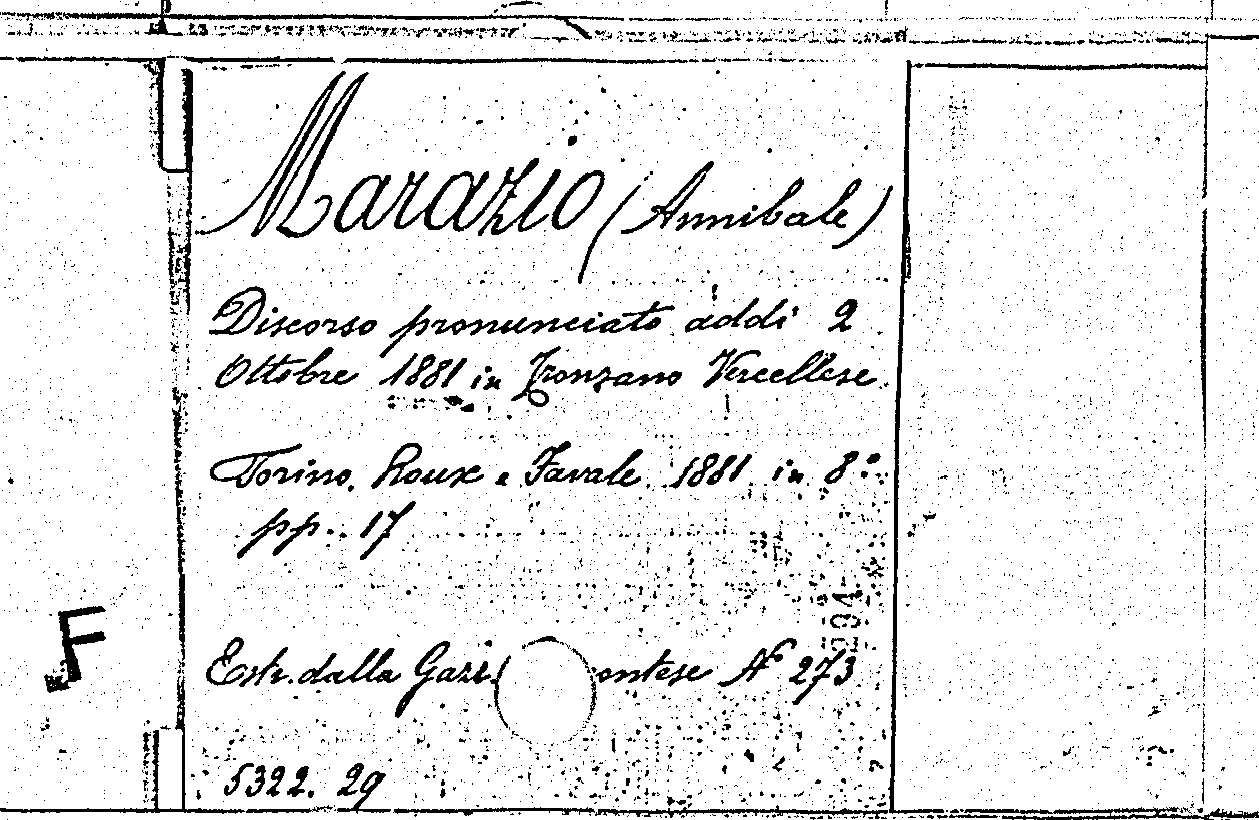 Marazio (Annibale)
Discorso pronunciato addì 2
Ottobre 1881 in Tronzano Vercellese.
Torino, Roux e Favale. 1881. in 8°:
pp. 17
294
F
Estr. dalla Gazz. ontese Nº 273
5322. 29